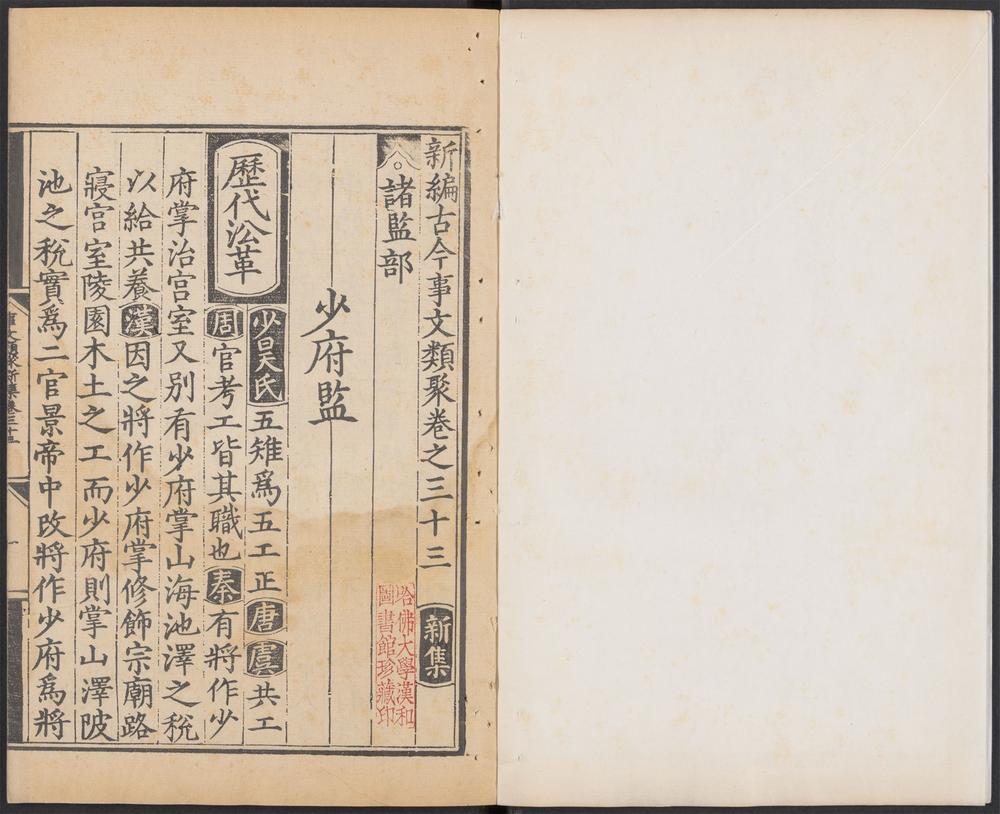 新編古今事文類聚卷之三十三 新集
諸監部
少府監
歷代㳂革
少昊氏五雉爲五工正唐虞共工
周官考工皆其職也秦有將作少
府掌治宫室又别有少府掌山海池澤之稅
以給共養漢因之將作少府掌修飾宗廟路
寢宫室陵園木土之工而少府則掌山澤陂
池之稅實爲二官景帝中改將作少府爲將
塔佛大學漢和
圖書館珍藏印